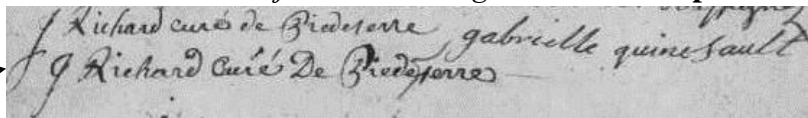 J Richard curé de Piedeserre gabrielle quinesault
J Richard Curé De Piedeserre